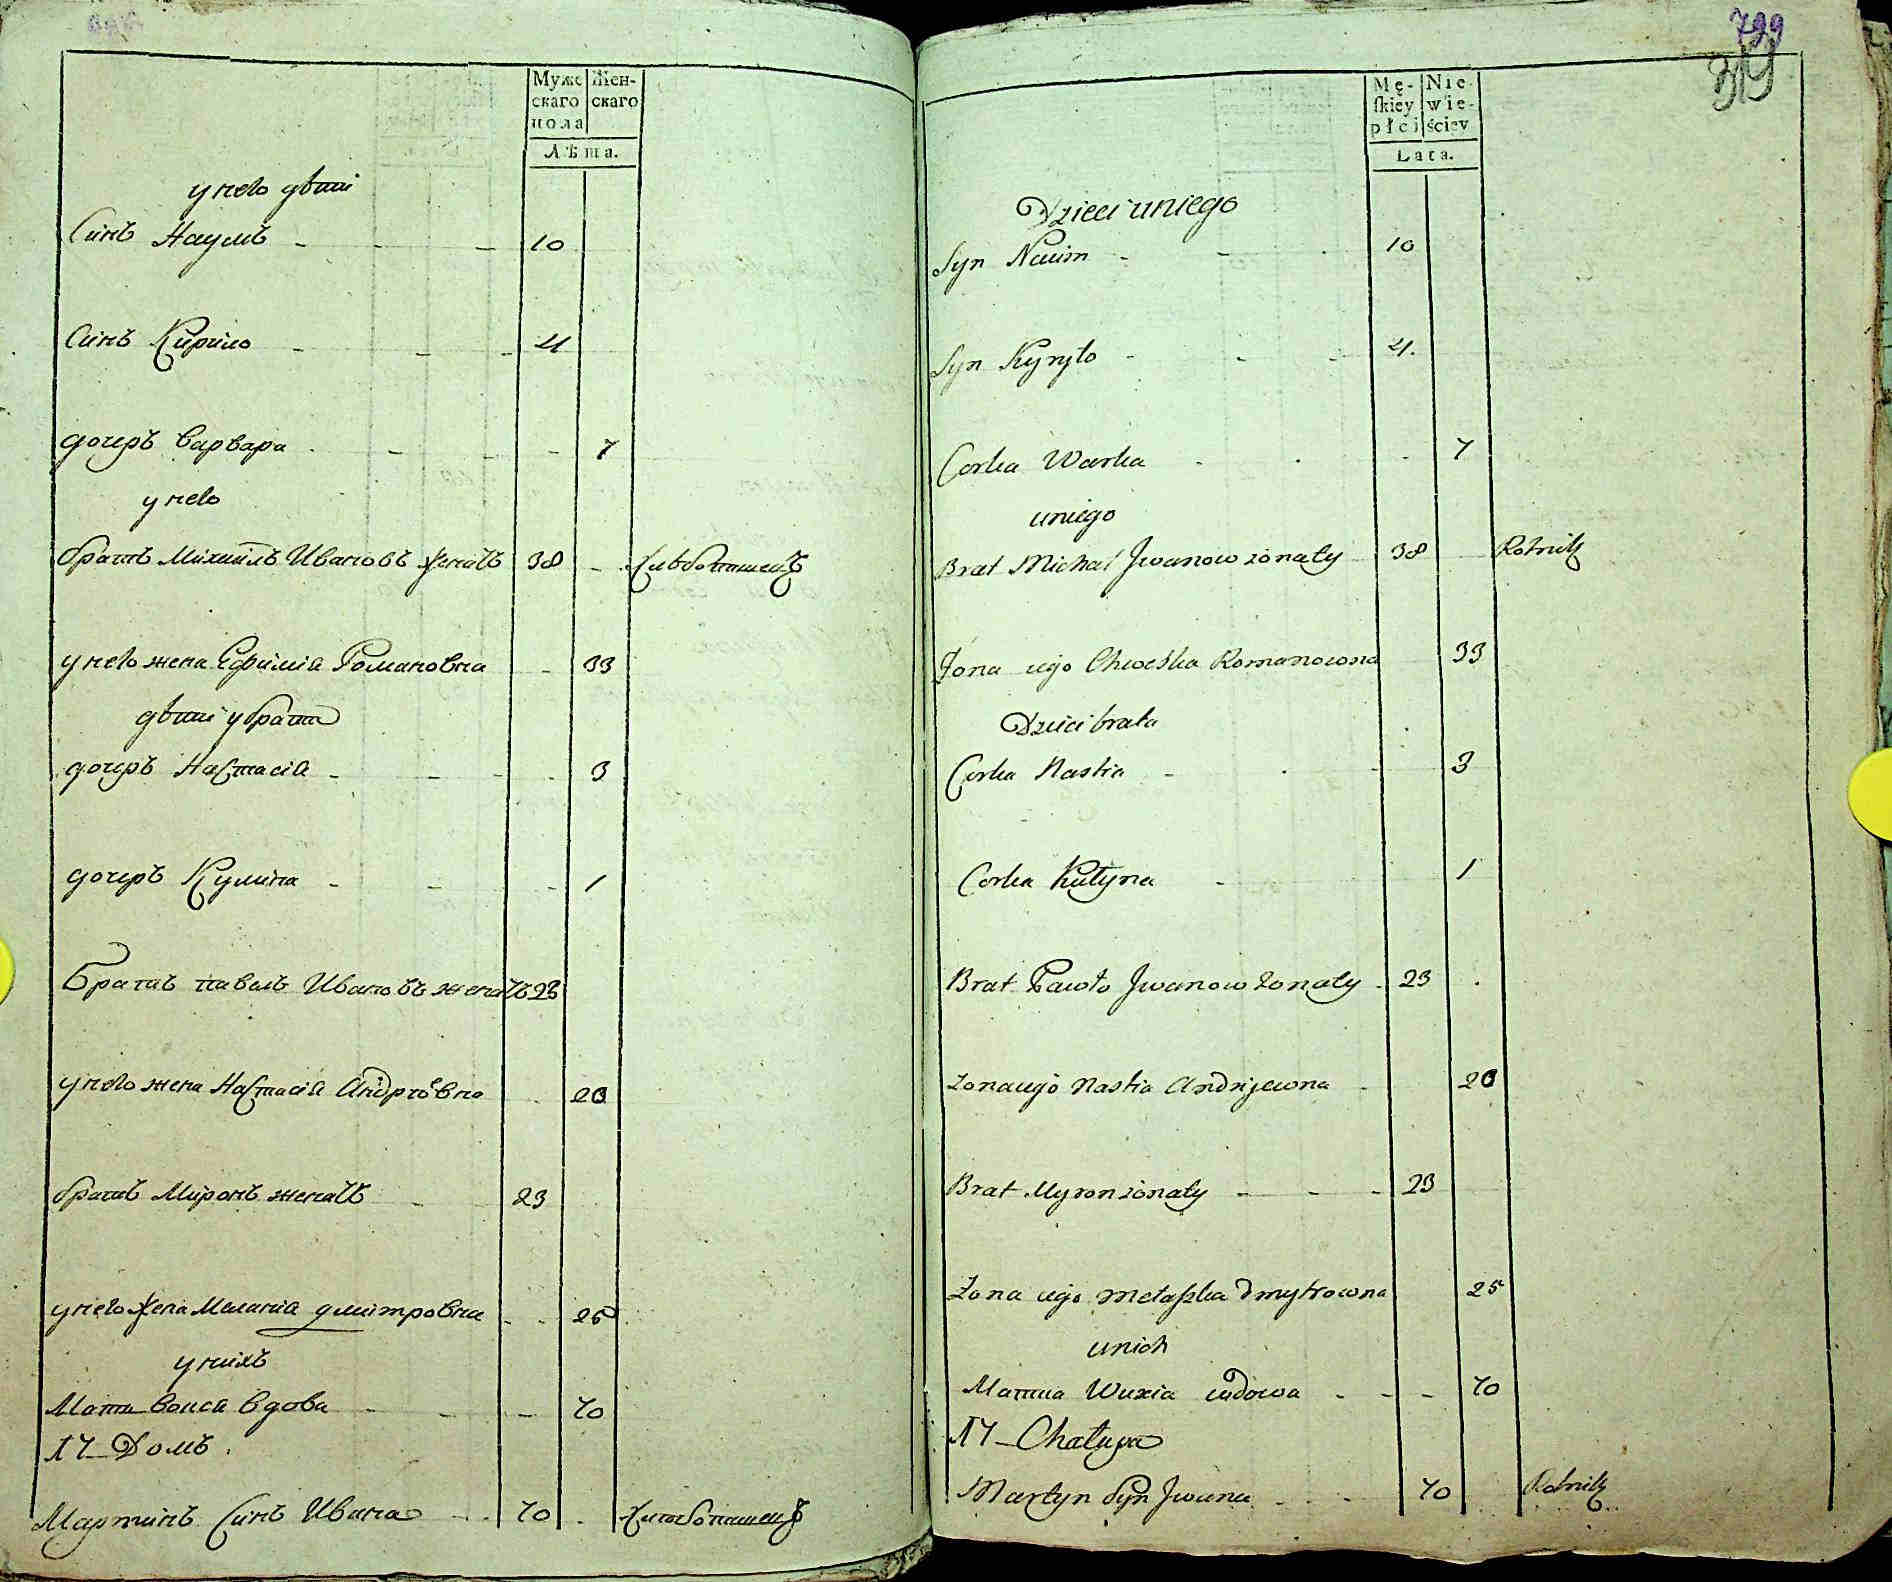 Муже
скаго
пола
Жен-
скаго
Лѣта.
у него дѣти
Синъ Наумъ - - - 10
Синъ Кирило - - - 4
дочеръ Варвара - - - 7
у него
братъ Михаилъ Ивановъ женатъ 38 - хлѣбопашецъ
у него жена Ефимія Романовна - 33
дѣти у брата
дочеръ Настасія - - - 3
дочеръ Кулина - - - 1
Братъ павелъ Ивановъ женатъ 23
у него жена Настасія Андреевна 20
братъ Миронъ женатъ - 23
у него жена Меланія дмитровна - - 25
у нихъ
Мати вдова - - - 70
17 Домъ.
Мартинъ Синъ Ивана - - 70 хлѣбопашецъ
799
319
Mę-
skiey
płci
Nie-
wie-
ściey
Lata.
Dzieci uniego
Syn Naum - - 10
Syn Kyryło - - - 4.
Corka Warka - - - 7
uniego
Brat Michał Jwanow zonaty 38 Rolnik
Żona iego Chweśka Romanowna 33
Dzieci brata
Corka Nastia - - - 3
Corka Kulyna - 1
Brat Pawło Jwanow zonaty - 23
zona iego Nastia Andrijewna - 20
Brat Myron zonaty - - - 23
Żona iego Melaszka Dmytrowna 25
unich
Matka wdowa - - - 70
17 Chałupa
Martyn Syn Jwana - - - 70 Rolnik